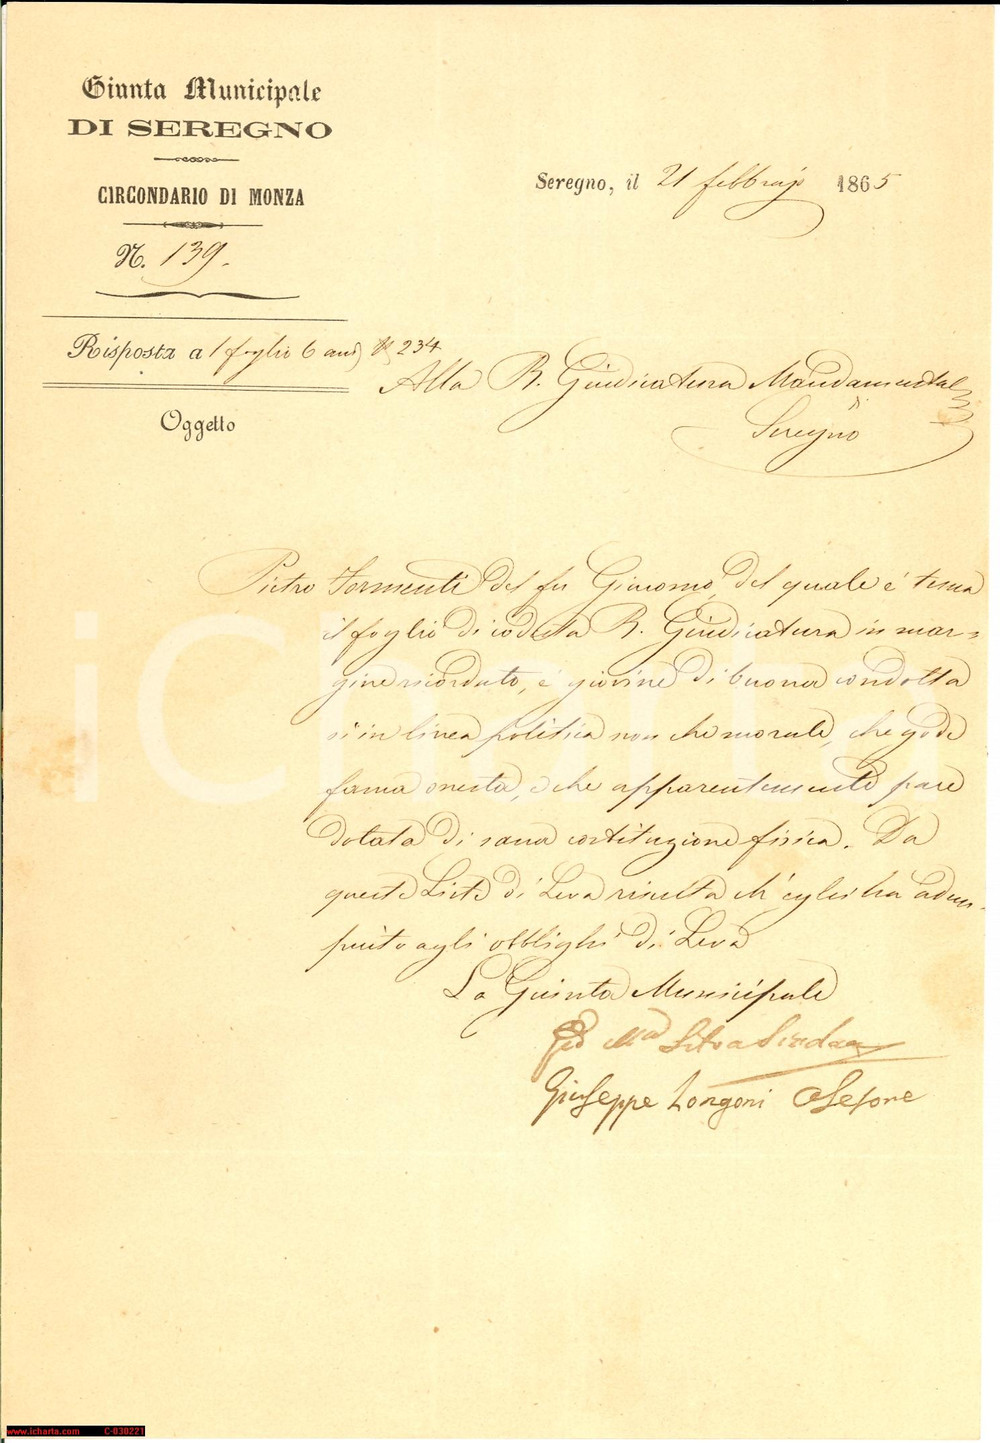 Giunta Municipale
DI SEREGNO
CIRCONDARIO DI MONZA
N. 139.
Seregno, il 21 febbrajo 1865
Risposta a l foglio 6 and N 234
Alla R. Giudicatura Mandamentale
di
Seregno
Oggetto
Pietro Formenti del fu Giacomo, del quale è tema
il foglio di codesta R. Giudicatura in mar=
gine ricordato, è giovine di buona condotta
sì in linea politica non che morale, che gode
fama onesta, e che apparentemente pare
dotata di sana costituzione fisica. Da
queste Liste di Leva risulta ch'egli ha adem-
piuto agli obblighi di Leva
La Giunta Municipale
Gio Ma Silva Sindaco
Giuseppe Longoni Asesore
iCharta
www.icharta.com C-030221